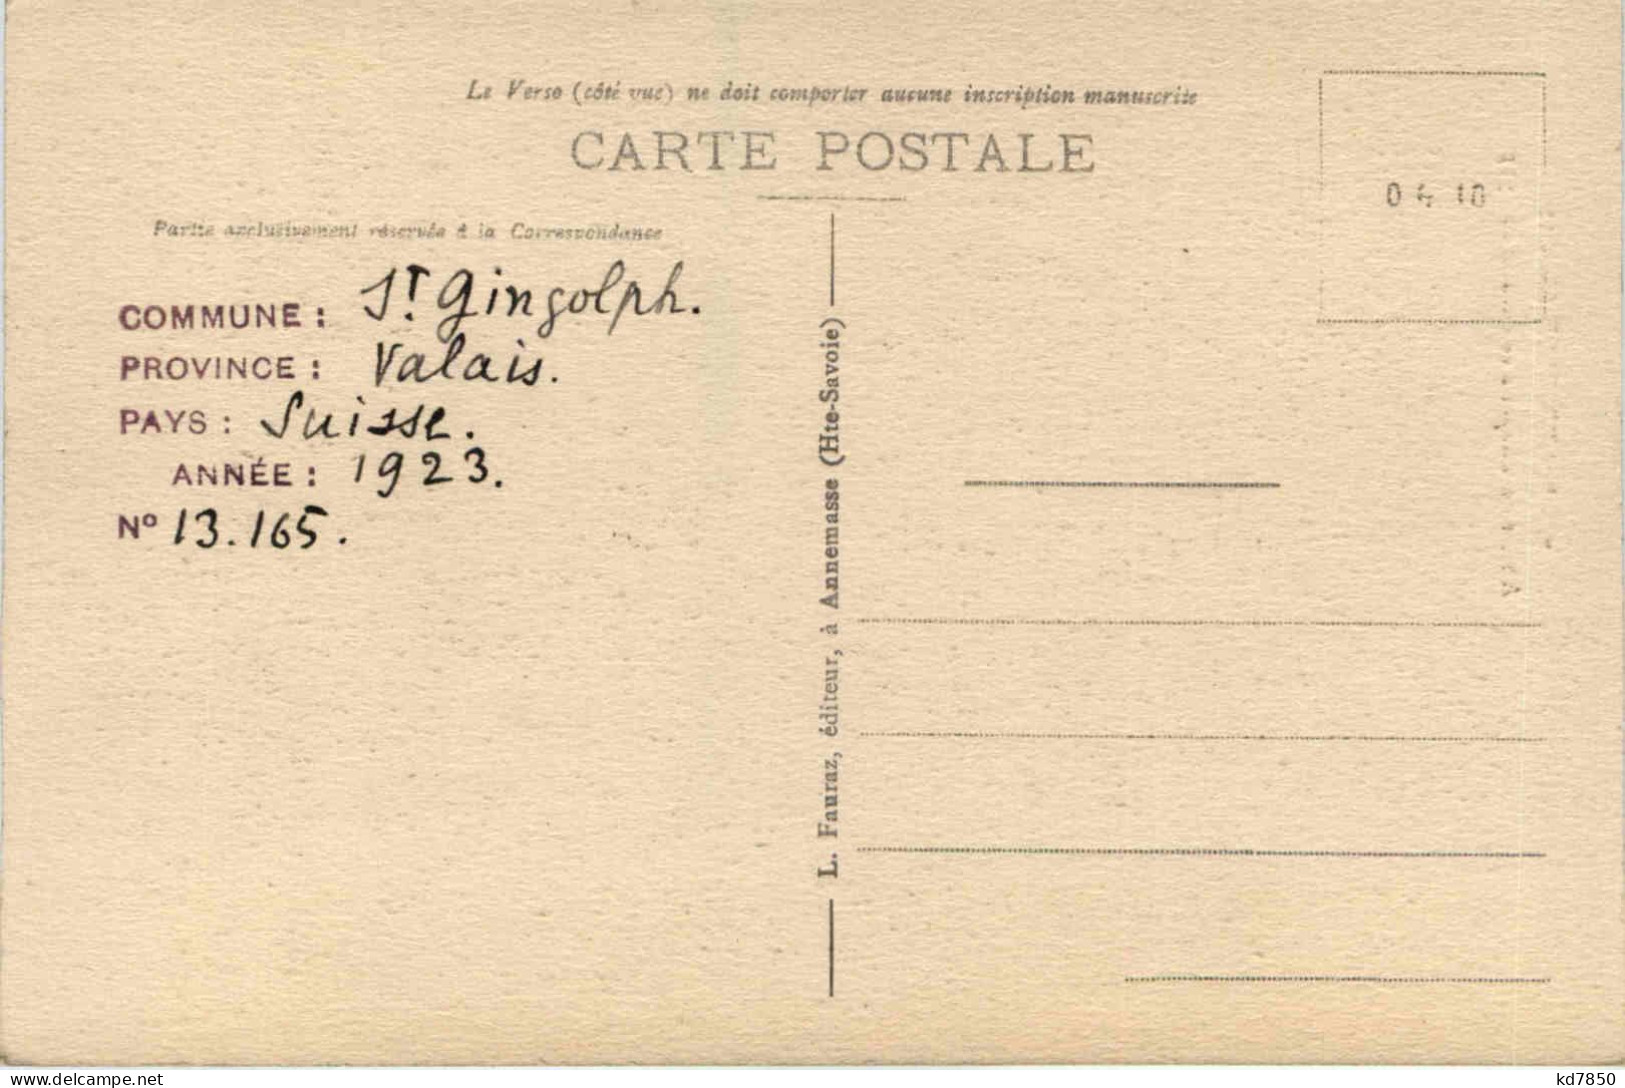 Le Verso (côté vue) ne doit comporter aucune inscription manuscrite
CARTE POSTALE
0 4 10
Partie exclusivement réservée à la Correspondance
COMMUNE : St. Gingolph.
PROVINCE : Valais.
PAYS : Suisse.
ANNÉE : 1923.
No 13.165.
L. Fauraz, éditeur, à Annemasse (Hte-Savoie)
delcampe.net
kd7850